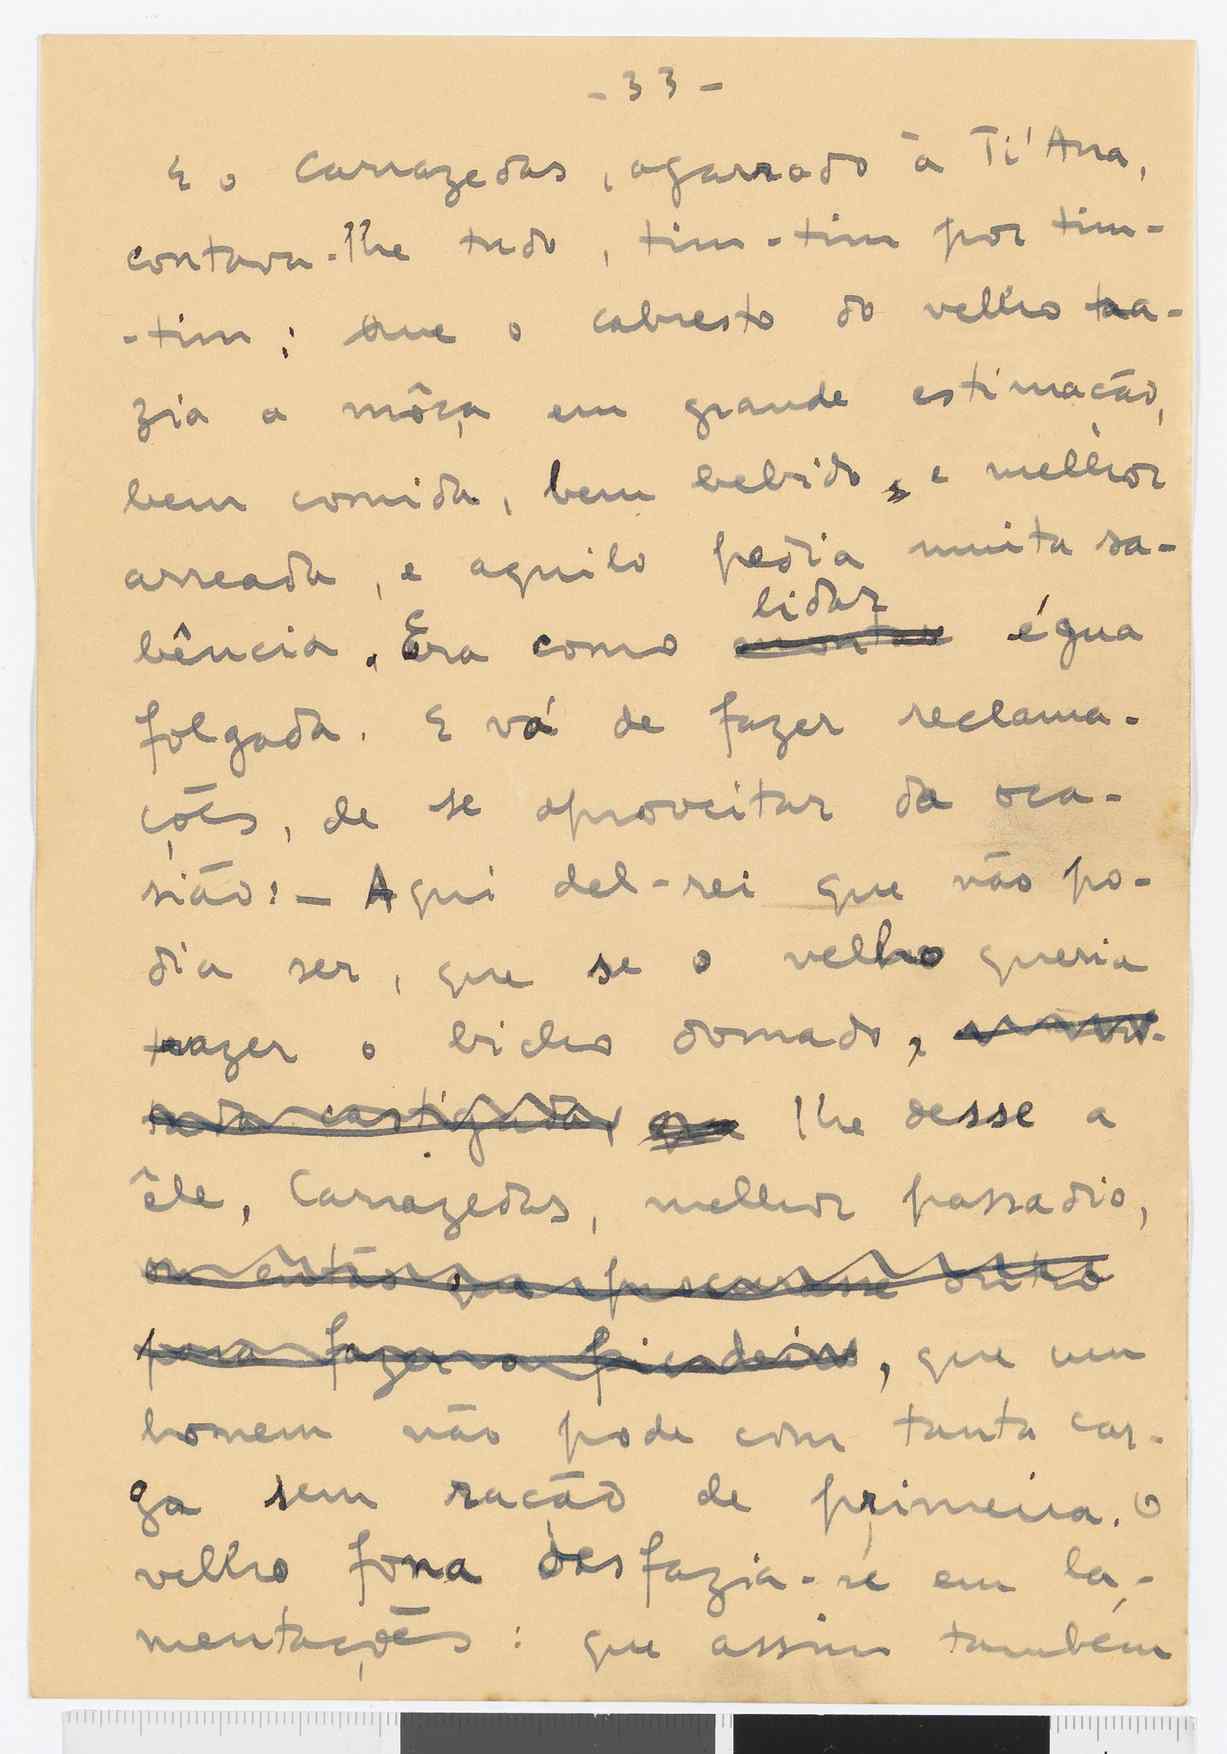 - 33 -
E o Carrazedas, agarrado à Ti' Ana,
contava-lhe tudo, tim-tim por tim-
-tim: Que o cabresto do velho tra-
zia a môça em grande estimação,
bem comida, bem bebida, e melhor
arreada, e aquilo pedia muita sa-
lidar
bência. Era como montar égua
folgada. E vá de fazer reclama-
ções, de se aproveitar da oca-
sião: - Aqui del-rei que não po-
dia ser, que se o velho queria
trazer o bicho domado,
castigada, que lhe desse a
êle, Carrazedas, melhor passadio,
ou então que procurasse outro
para fazer a picadeiro, que um
homem não pode com tanta car-
ga sem ração de primeira. O
velho fona desfazia-se em la-
mentações: que assim também